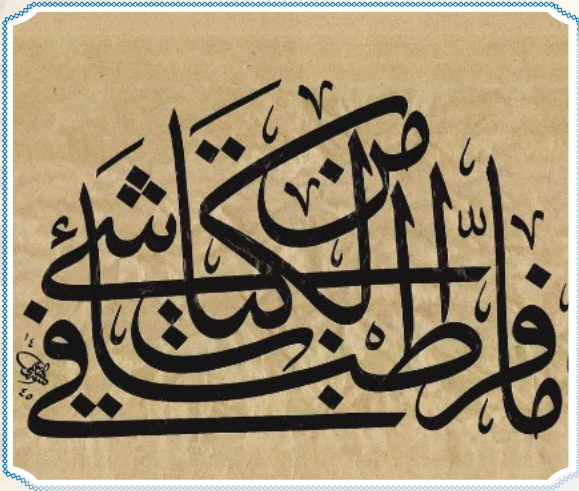 ما فرطنا في الكتاب من شيء